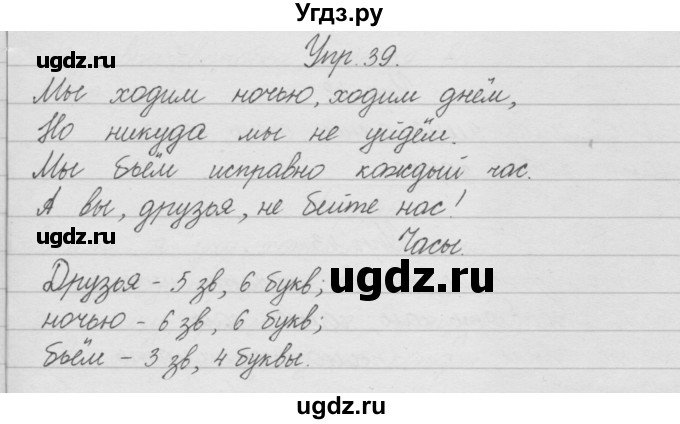 Угдз.ру
ugdz.ru
ugdz.ru
Упр. 39.
Мы ходим ночью, ходим днём,
Но никуда мы не уйдём.
Мы бьём исправно каждый час.
А вы, друзья, не бейте нас!
ugdz.ru
ugdz.ru
Часы.
Друзья - 5 зв, 6 букв;
ugdz.ru
ночью - 6 зв, 6 букв;
бьём - 3 зв, 4 буквы.
ugdz.ru
ugdz.ru